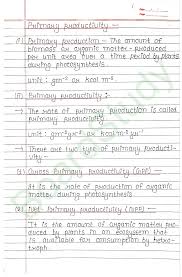 Primary productivity :-
(A) Primary production - The amount of
biomass or organic matter produced
per unit area over a time period by plants
during photosynthesis.
unit : gm⁻² or kcal m⁻²
(B) Primary productivity :-
→ The rate of primary production is called
primary productivity
unit : gm⁻²yr⁻¹ or kcal m⁻²yr⁻¹
→ There are two type of primary producti-
vity -
(1) Gross Primary productivity (GPP) -
It is the rate of production of organic
matter during photosynthesis
(2) Net Primary productivity (NPP)
It is the amount of organic matter pro-
duced by plants in an ecosystem that
is available for consumption by hetero-
troph